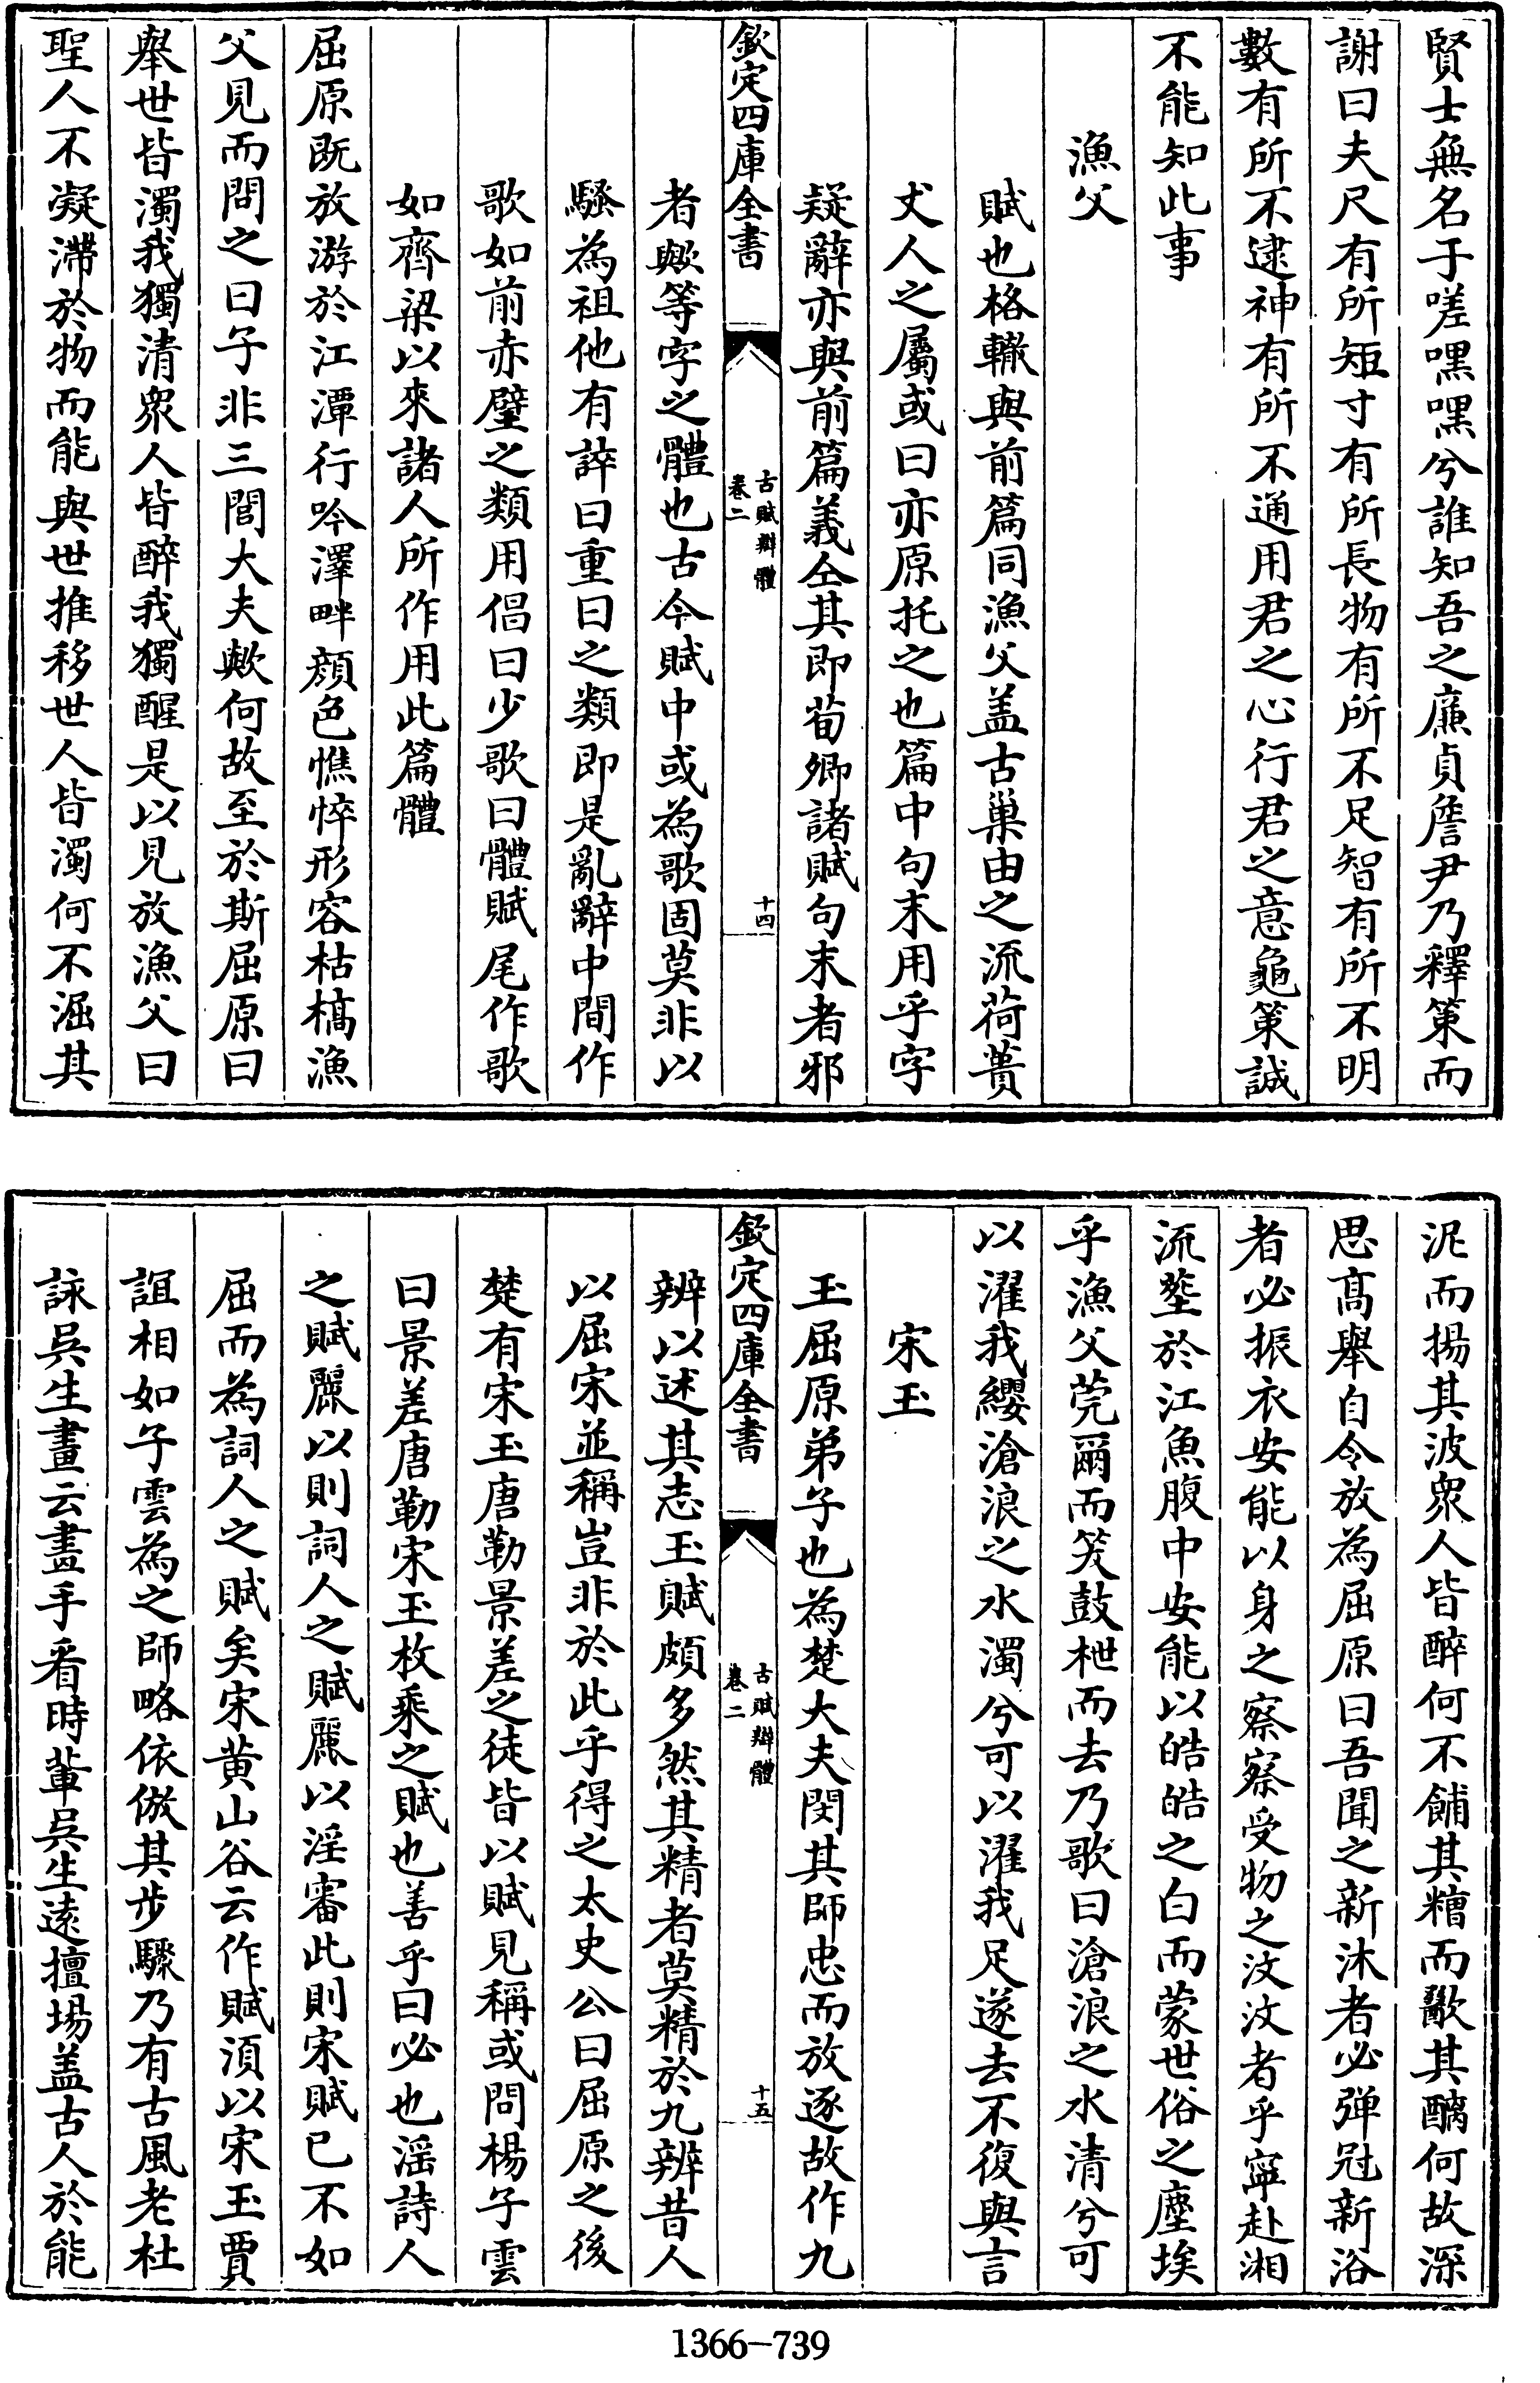 賢士無名于嗟嘿嘿兮誰知吾之廉貞詹尹乃釋策而
謝曰夫尺有所短寸有所長物有所不足智有所不明
數有所不逮神有所不通用君之心行君之意龜策誠
不能知此事
漁父
賦也格轍與前篇同漁父盖古巢由之流荷蕢
丈人之屬或曰亦原托之也篇中句末用乎字
疑辭亦與前篇義仝其即荀卿諸賦句末者邪
欽定四庫全書
古賦辯體
卷二
十四
者歟等字之體也古今賦中或為歌固莫非以
騷為祖他有誶曰重曰之類即是亂辭中間作
歌如前赤壁之類用倡曰少歌曰體賦尾作歌
如齊梁以來諸人所作用此篇體
屈原既放游於江潭行吟澤畔顔色憔悴形容枯槁漁
父見而問之曰子非三閭大夫歟何故至於斯屈原曰
舉世皆濁我獨清衆人皆醉我獨醒是以見放漁父曰
聖人不凝滯於物而能與世推移世人皆濁何不淈其
泥而揚其波衆人皆醉何不餔其糟而歠其醨何故深
思髙舉自令放為屈原曰吾聞之新沐者必彈冠新浴
者必振衣安能以身之察察受物之汶汶者乎寧赴湘
流塟於江魚腹中安能以皓皓之白而蒙世俗之塵埃
乎漁父莞爾而笑鼓枻而去乃歌曰滄浪之水清兮可
以濯我纓滄浪之水濁兮可以濯我足遂去不復與言
宋玉
玉屈原弟子也為楚大夫閔其師忠而放逐故作九
欽定四庫全書
古賦辯體
卷二
十五
辨以述其志玉賦頗多然其精者莫精於九辨昔人
以屈宋並稱豈非於此乎得之太史公曰屈原之後
楚有宋玉唐勒景差之徒皆以賦見稱或問楊子雲
曰景差唐勒宋玉枚乘之賦也善乎曰必也滛詩人
之賦麗以則詞人之賦麗以淫審此則宋賦已不如
屈而為詞人之賦矣宋黄山谷云作賦湏以宋玉賈
誼相如子雲為之師略依倣其步驟乃有古風老杜
詠吳生畫云畫手看時輩吳生逺擅場盖古人於能
1366-739